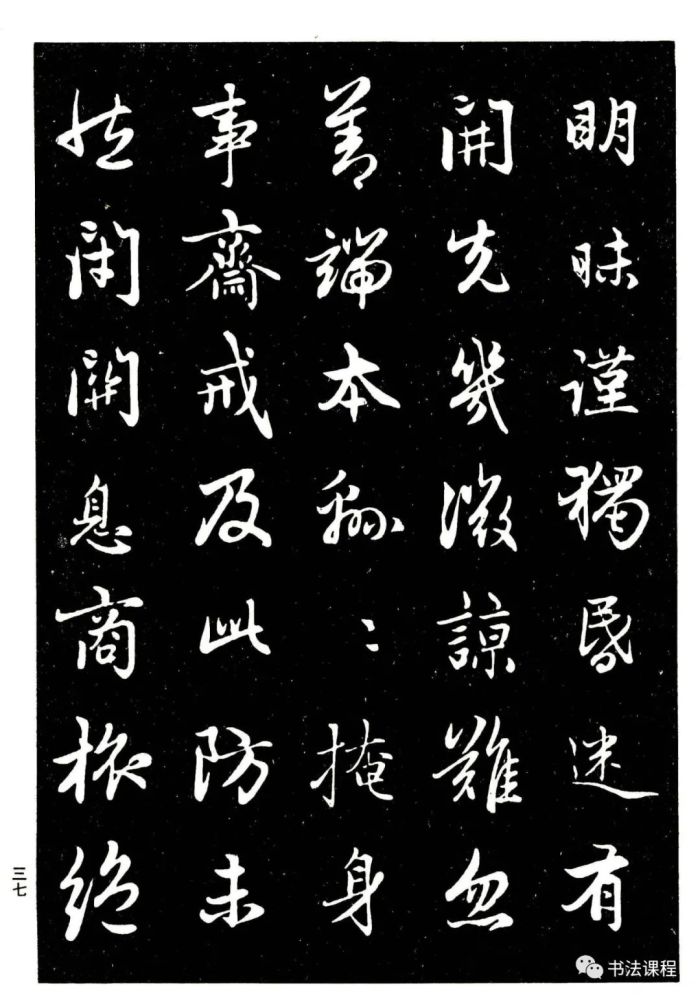 明昧謹獨昏迷有
開先幾微諒難忽
善端本緜〻掩身
事齋戒及此防未
然閉關息商旅絕
三七
书法课程